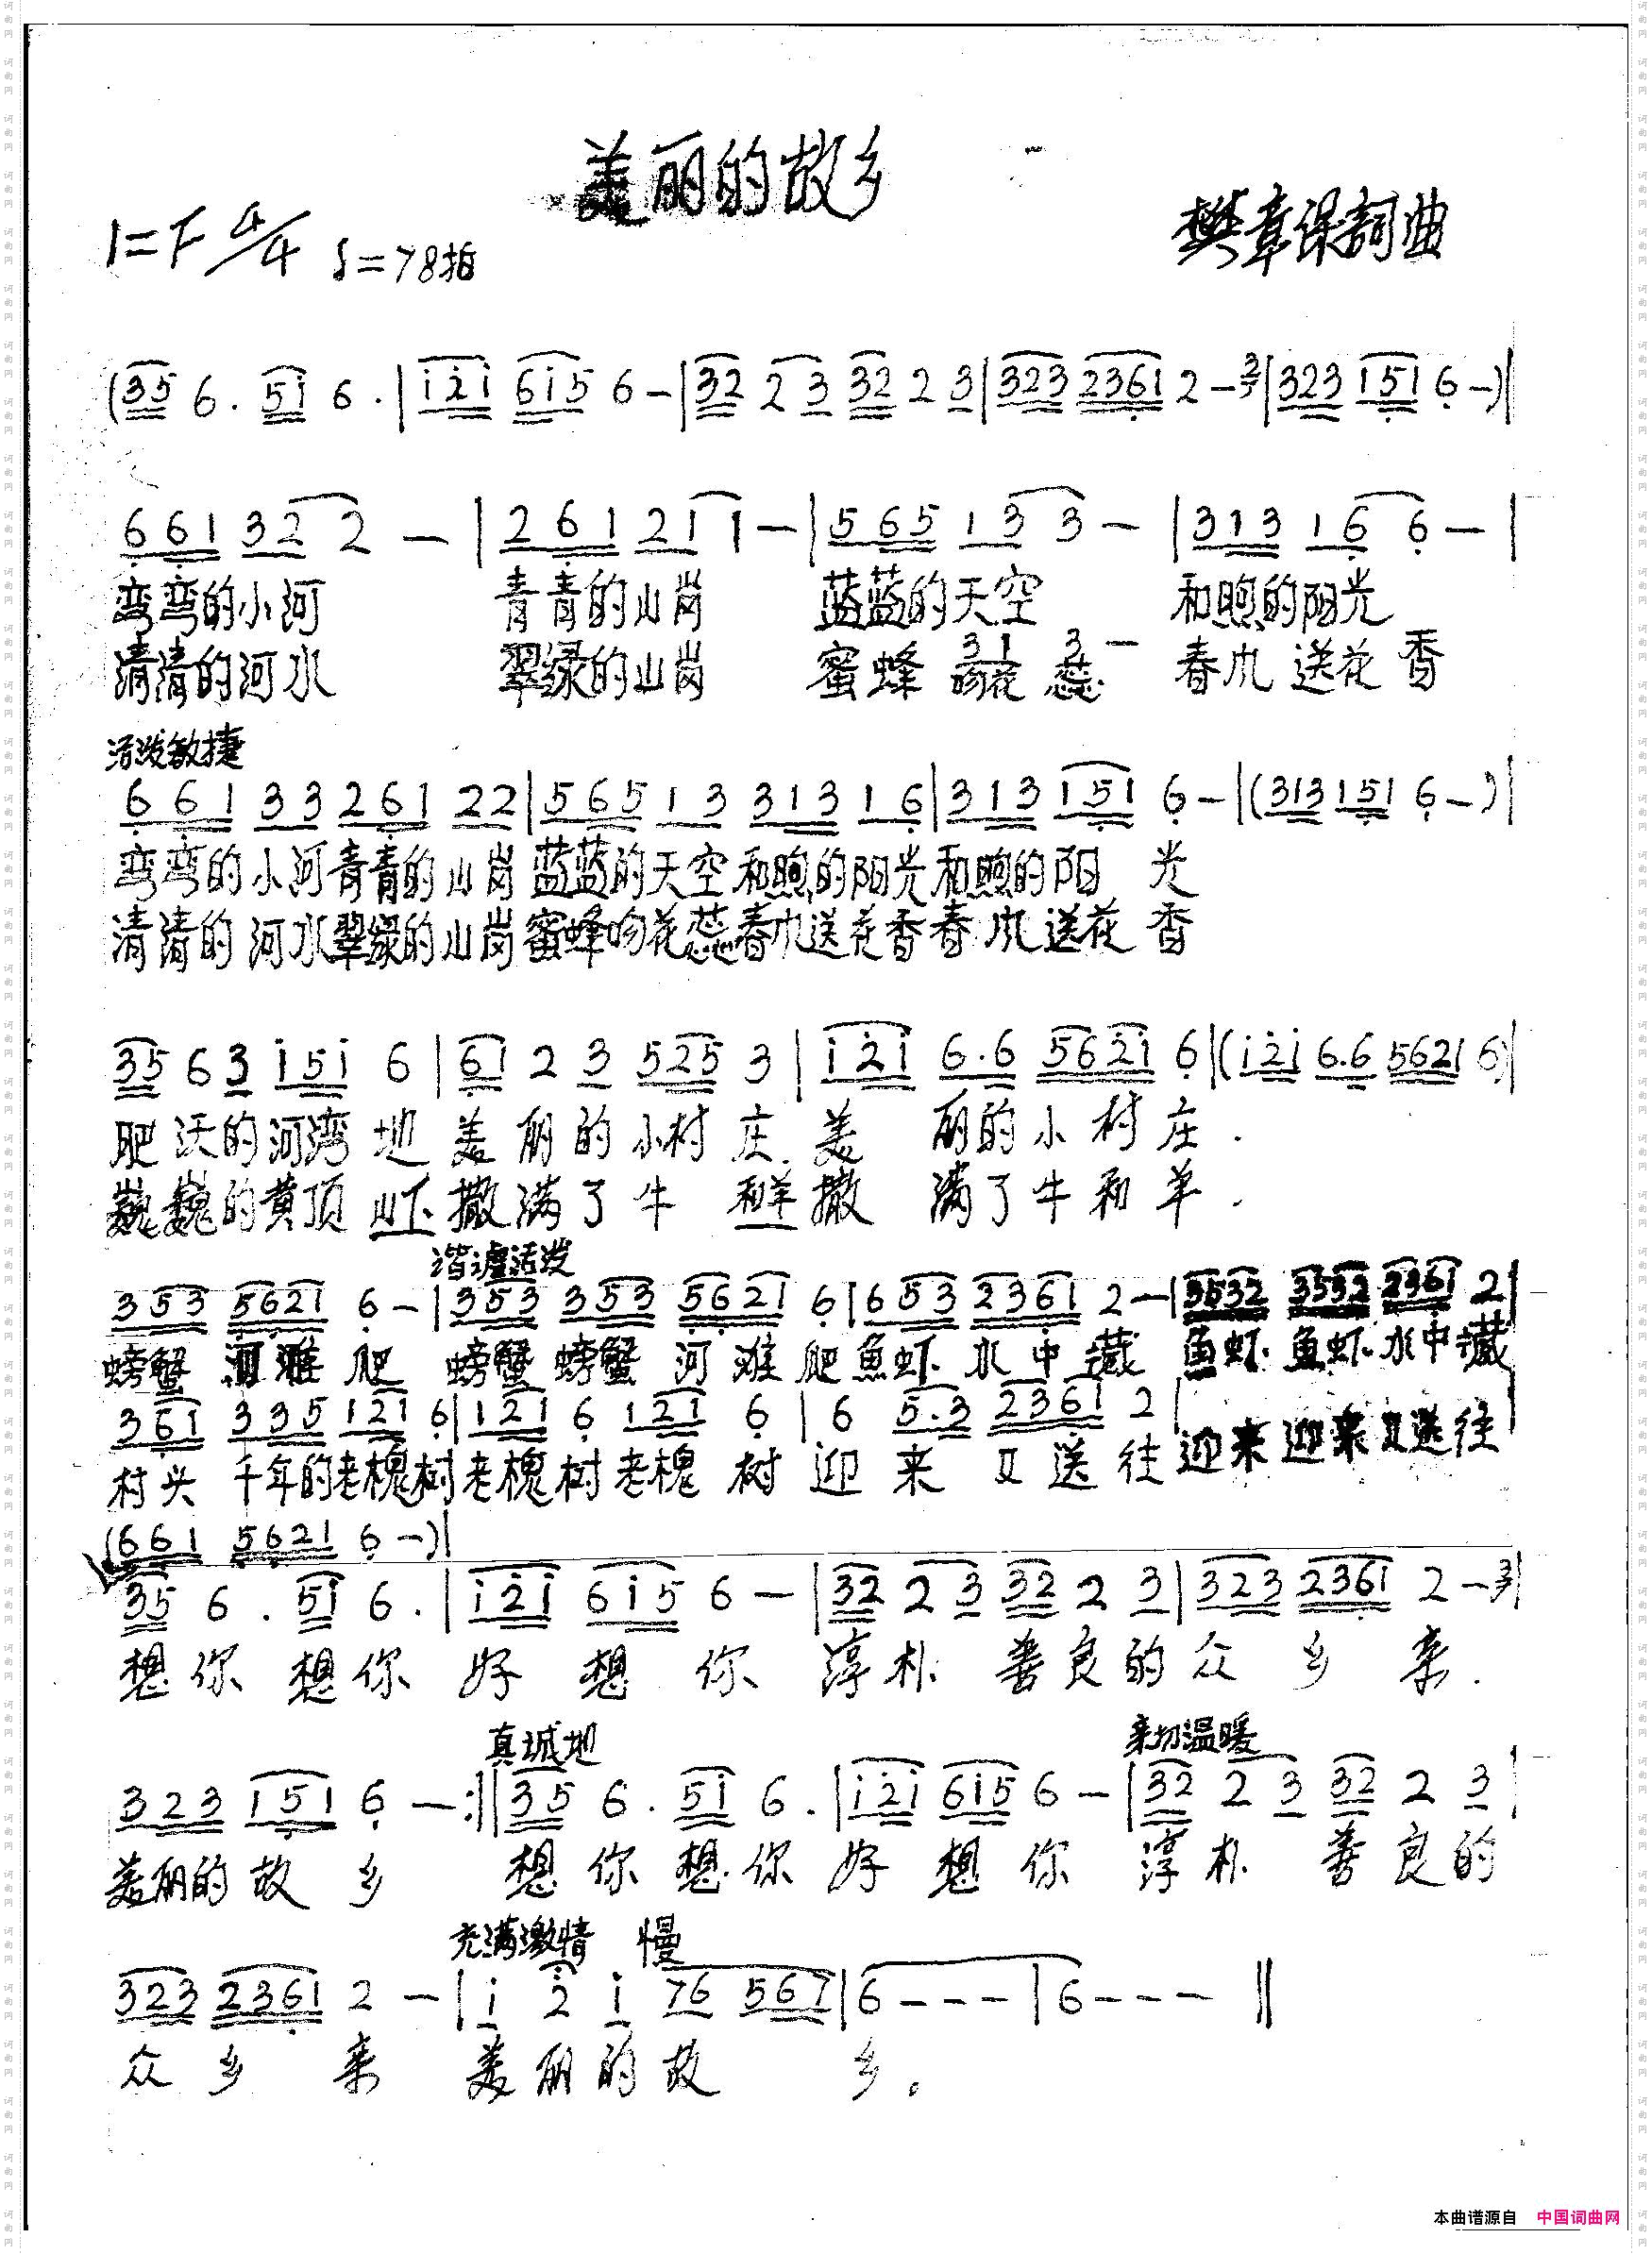 美丽的故乡
1=F 4/4 ♩=78拍
樊章保詞曲
(35 6. 5i 6. | i2i 6i5 6 - | 32 2 3 32 2 3 | 323 2361 2 - 3 | 323 151 6 -) ‖
661 32 2 - | 261 21 1 - | 565 13 3 - | 313 16 6 - |
弯弯的小河 青青的山岗 蓝蓝的天空 和煦的阳光
31 3 -
清清的河水 翠绿的山岗 蜜蜂吻花蕊 春风送花香
活泼敏捷
661 33 261 22 | 565 13 313 16 | 313 151 6 - | (313 151 6 -) |
弯弯的小河青青的山岗蓝蓝的天空和煦的阳光和煦的阳 光
清清的河水翠绿的山岗蜜蜂吻花蕊春风送花香春风送花香
35 6 3 i5i 6 | 61 2 3 525 3 | i2i 6.6 562i 6 | (i2i 6.6 5621 6) |
肥沃的河湾地 美丽的小村庄. 美 丽的小村庄.
巍巍的黄顶山下撒满了牛 和羊撒 满了牛和羊.
谐谑活泼
353 5621 6 - | 353 353 5621 6 | 653 2361 2 - | 3532 3532 2361 2 |
螃蟹 河滩 爬 螃蟹 螃蟹 河滩爬鱼虾 水中藏 鱼虾 鱼虾水中藏
361 335 121 6 | 121 6 121 6 | 6 5.3 2361 2 |
村头 千年的老槐树老槐树老槐 树 迎 来 又送往迎来迎来又送往
(661 5621 6 -) |
35 6. 5i 6. | i2i 6i5 6 - | 32 2 3 32 2 3 | 323 2361 2 - 3 |
想你 想你 好 想 你 淳朴 善良的众 乡 亲.
真诚地 亲切温暖
323 151 6 - :‖ 35 6. 5i 6. | i2i 6i5 6 - | 32 2 3 32 2 3 |
美丽的故 乡 想 你 想 你 好 想 你 淳朴 善良的
充满激情 慢
323 2361 2 - | i 2 i 76 567 | 6 - - - | 6 - - - ‖
众 乡 亲 美丽的故 乡。
本曲谱源自 中国词曲网